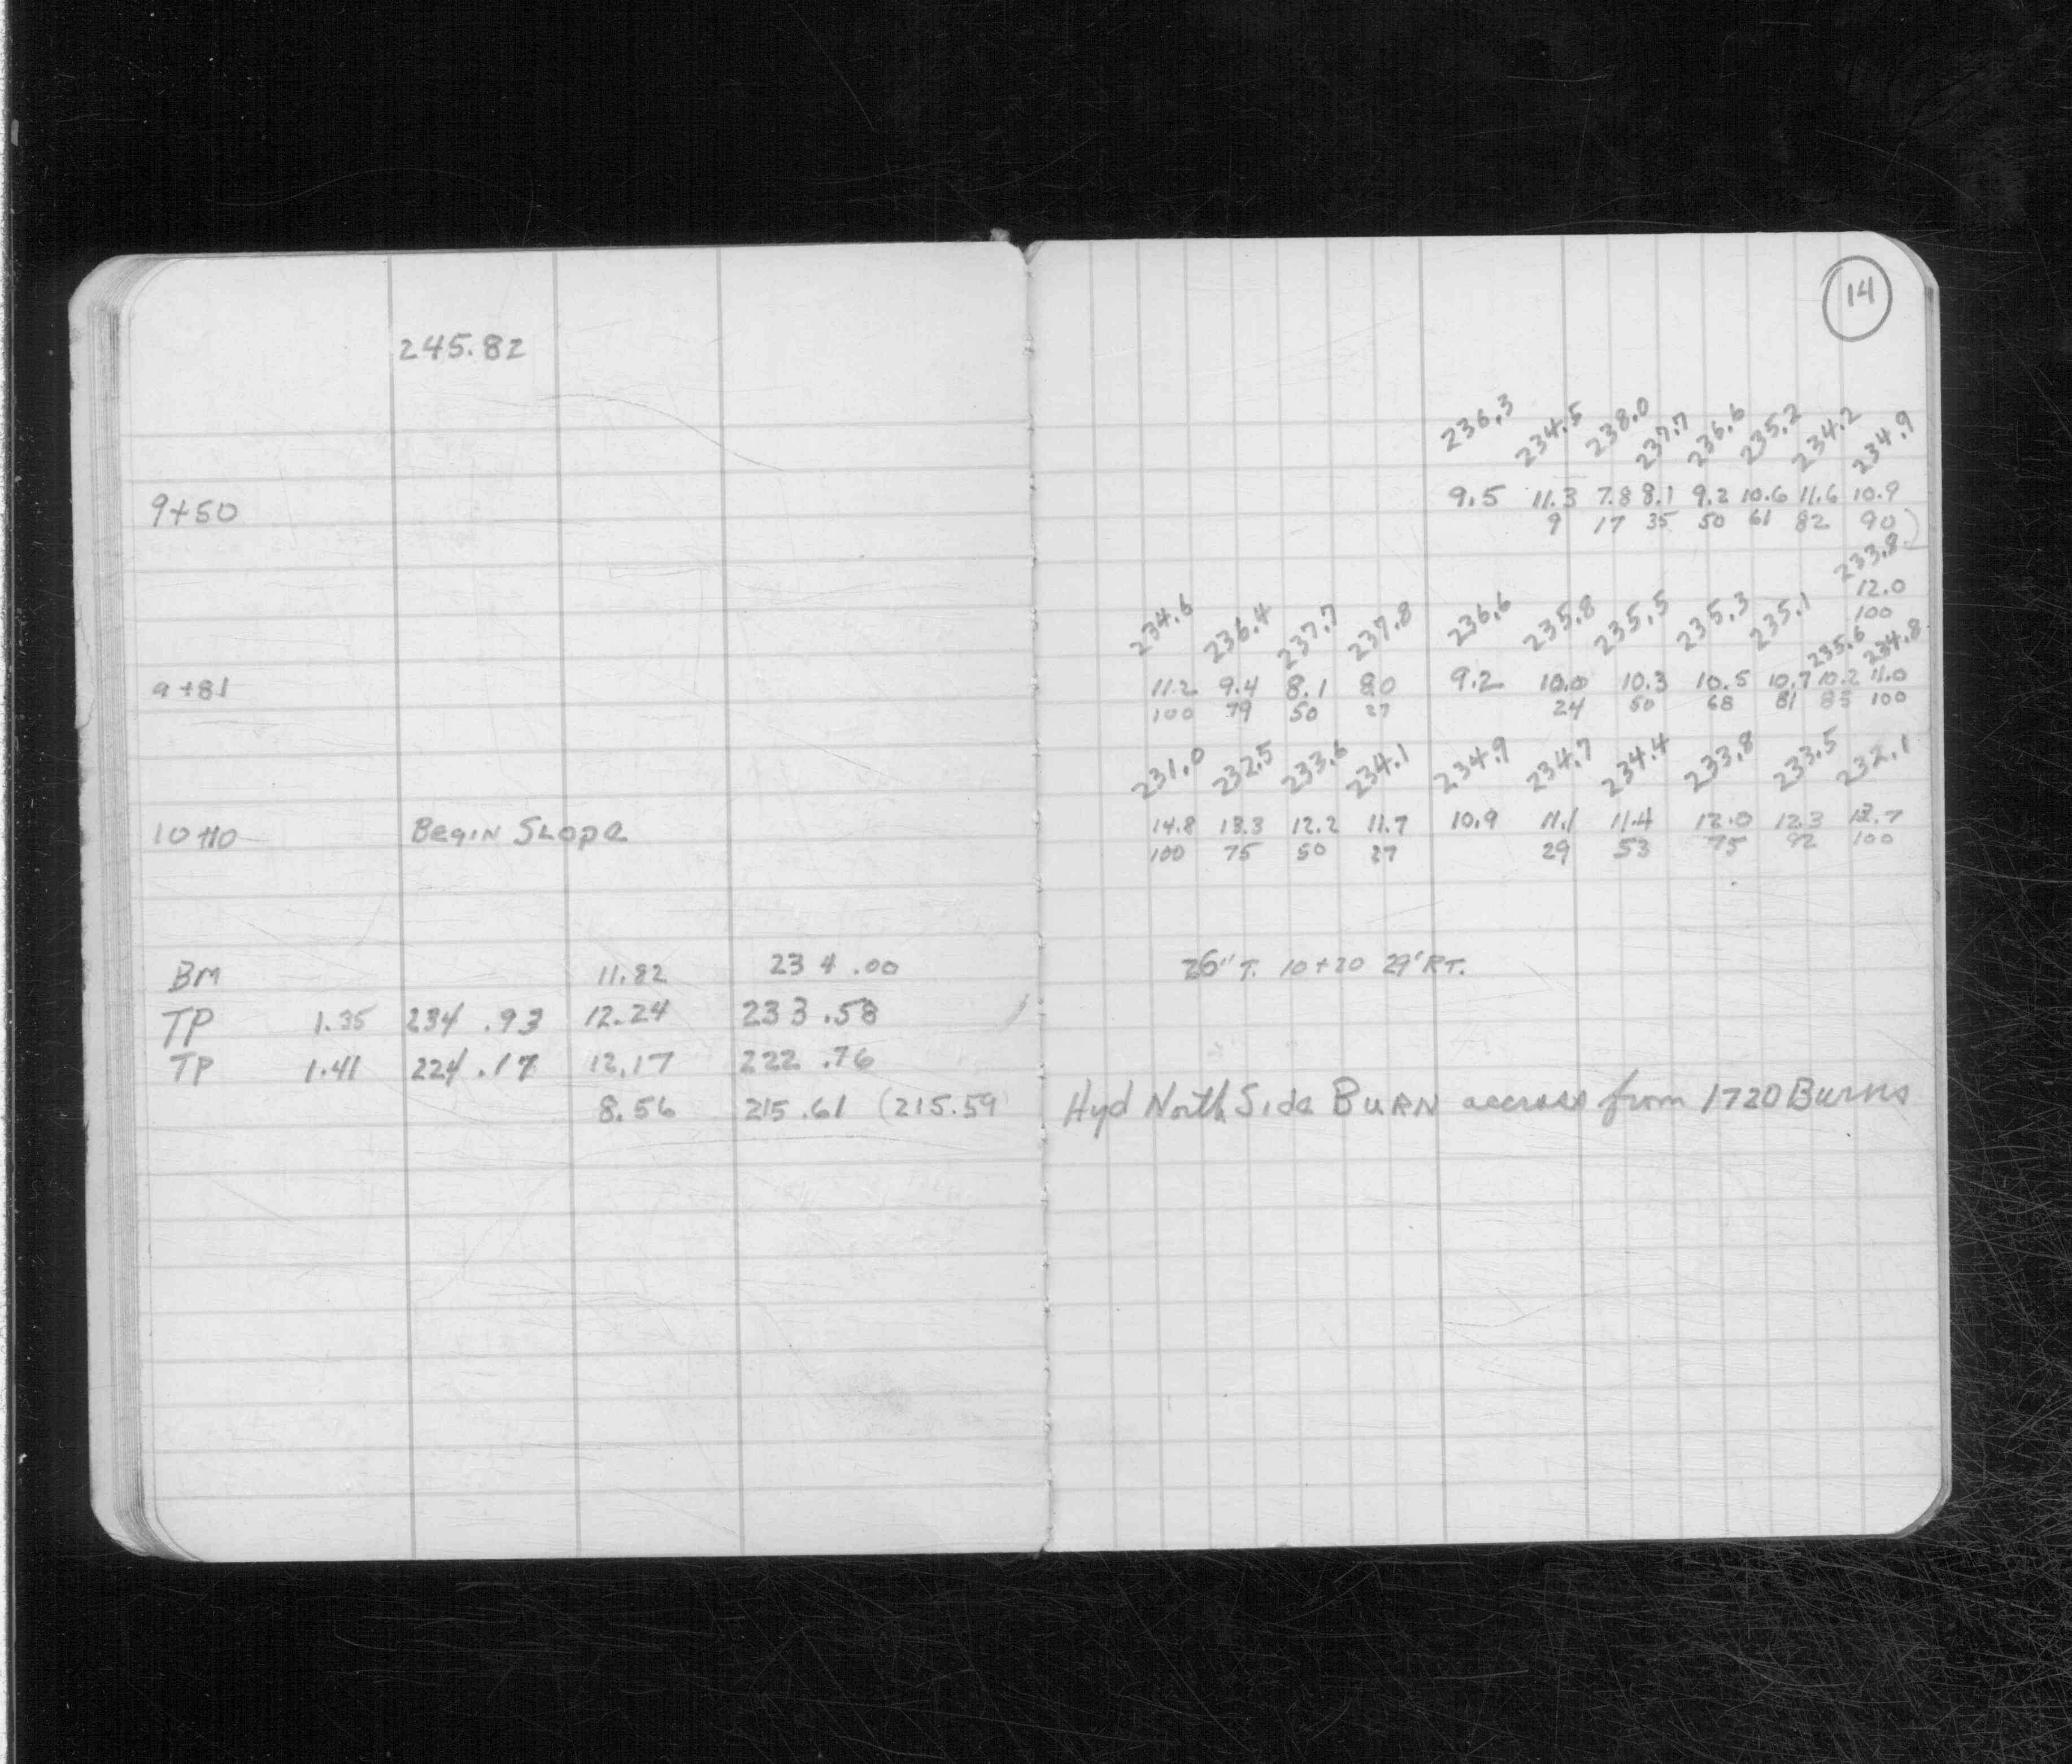 14
245.82
236.3 234.5 238.0 237.7 236.6 235.2 234.2 234.9
9+50 9.5 11.3 7.8 8.1 9.2 10.6 11.6 10.9
9 17 35 50 61 82 90
233.8
12.0
100
234.6 236.4 237.7 237.8 236.6 235.8 235.5 235.3 235.1 235.6 234.8
9+81 11.2 9.4 8.1 8.0 9.2 10.0 10.3 10.5 10.7 10.2 11.0
100 79 50 27 24 50 68 81 85 100
231.0 232.5 233.6 234.1 234.9 234.7 234.4 233.8 233.5 232.1
10+10 Begin Slope 14.8 13.3 12.2 11.7 10.9 11.1 11.4 12.0 12.3 13.7
100 75 50 27 29 53 75 92 100
BM 11.82 234.00 26" T. 10+20 29' RT.
TP 1.35 234.93 12.24 233.58
TP 1.41 224.17 12.17 222.76
8.56 215.61 (215.59 Hyd North Side BURN accross from 1720 Burns